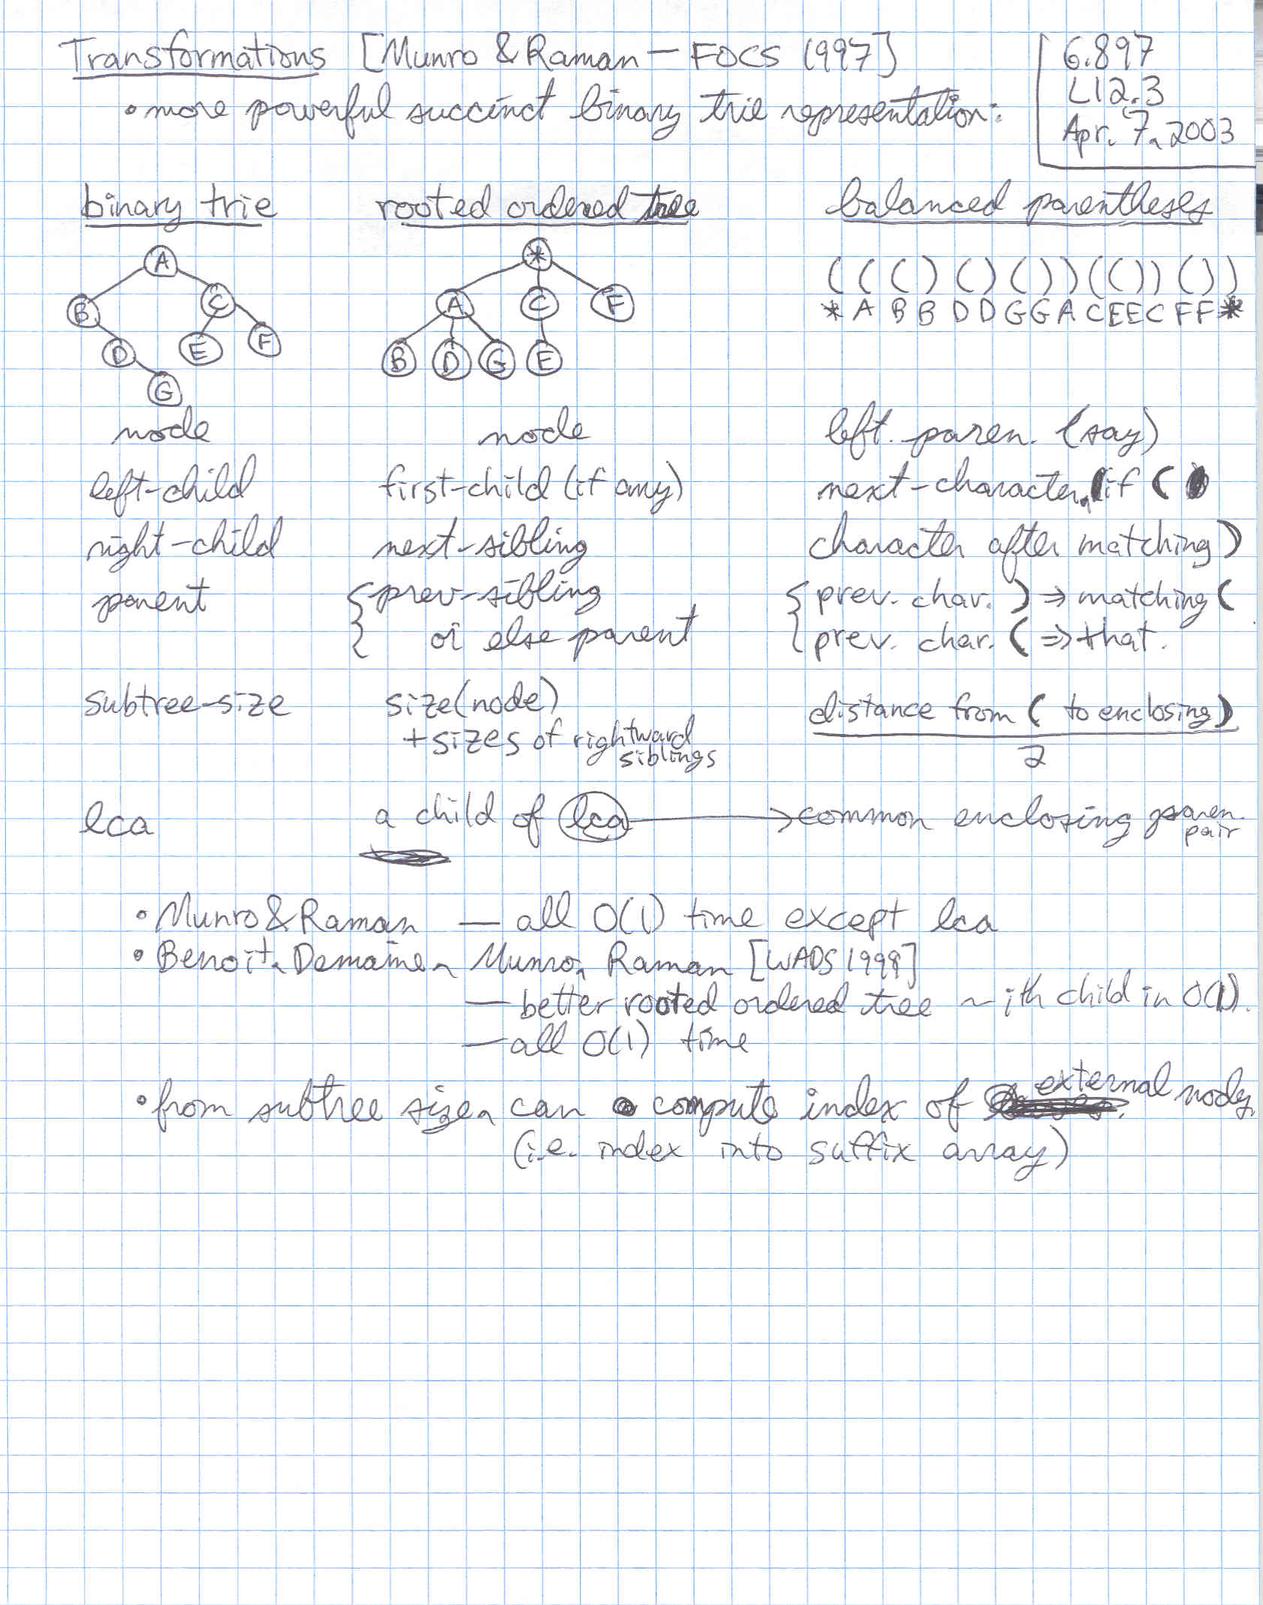 Transformations [Munro & Raman – FOCS 1997]
6.897
L12.3
Apr. 7, 2003
• more powerful succinct binary trie representation:
binary trie rooted ordered tree balanced parentheses
A * ( ( ( ) ( ) ( ) ) ( ( ) ) ( ) )
B C A C F * A B B D D G G A C E E C F F *
D E F B D G E
G
node node left paren. (say)
left-child first-child (if any) next-character, if (
right-child next-sibling character after matching )
parent { prev-sibling { prev. char. ) ⇒ matching (
or else parent prev. char. ( ⇒ that.
subtree-size size(node) distance from ( to enclosing )
+ sizes of rightward siblings 2
lca a child of lca → common enclosing paren. pair
• Munro & Raman — all O(1) time except lca
• Benoit, Demaine, Munro, Raman [WADS 1999]
— better rooted ordered tree ~ ith child in O(1).
— all O(1) time
• from subtree size, can compute index of external node,
(i.e. index into suffix array)